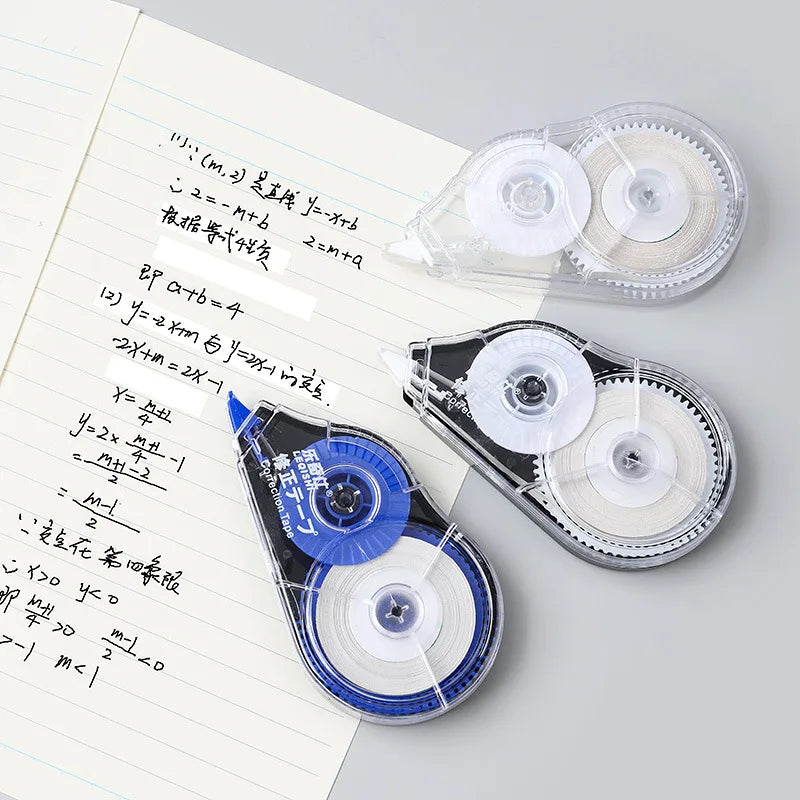 ∵(m,2)是直线 y=-x+b
∴2=-m+b 2=m+a
根据等式性质
即 a+b=4
(2) y=-2x+m 与 y=2x-1 的交点.
-2x+m=2x-1
x=\frac{m+1}{4}
y=2×\frac{m+1}{4}-1
=\frac{m+1-2}{2}
=\frac{m-1}{2}
∵交点在第四象限
∴x>0 y<0
即 \frac{m+1}{4}>0 \frac{m-1}{2}<0
>-1 m<1
LEQISHI ®
修正テープ
Correction Tape
Correction